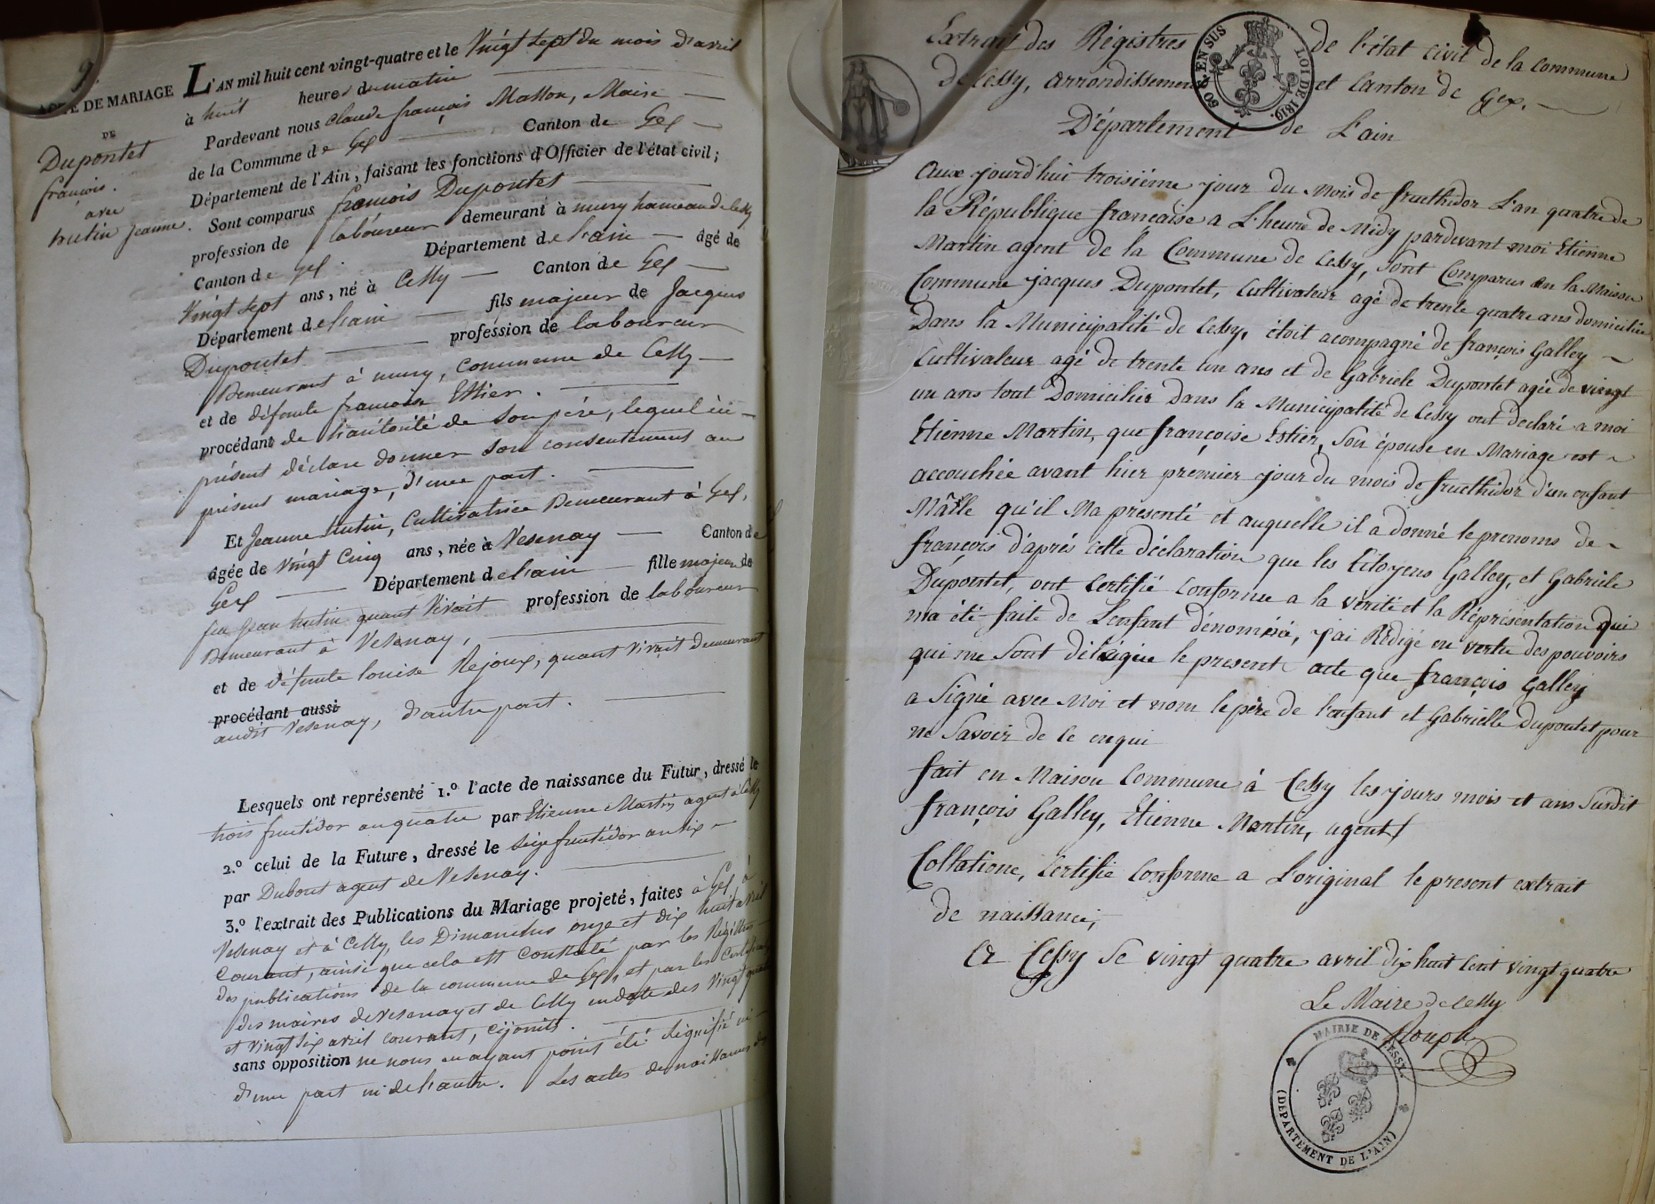 9.
ACTE DE MARIAGE
DE
Dupontet
françois.
avec
hutin jeanne.
L'AN mil huit cent vingt-quatre et le Vingt sept du mois d'avril
à huit heures du matin
Pardevant nous claude françois Matton, Maire
de la Commune de Gex Canton de Gex
Département de l'Ain, faisant les fonctions d'Officier de l'état civil;
Sont comparus françois Dupontet
profession de laboureur demeurant à mury hameau de Cessy
Canton de Gex Département de l'ain âgé de
Vingt sept ans, né à Cessy Canton de Gex
Département de l'ain fils majeur de Jacques
Dupontet profession de laboureur
Demeurant à mury, commune de Cessy
et de défunte françoise Ethier.
procédant de l'autorité de son père, lequel ici
présent déclare donner son consentement au
présent mariage, d'une part.
Et Jeanne hutin, Cultivatrice Demeurant à Gex,
âgée de Vingt Cinq ans, née à Vesenay Canton de
Gex Département de l'ain fille majeure de
feu Jean hutin quant vivait profession de laboureur
Demeurant à Vesenay,
et de défunte louise Rejoux, quant vivait demeurant
procédant aussi
audit Vesenay, d'autre part.
Lesquels ont représenté 1.º l'acte de naissance du Futur, dressé le
trois fructidor an quatre par Etienne Martin, agent à Cessy
2.º celui de la Future, dressé le seize fructidor an six
par Dubout agent de Vesenay.
3.º l'extrait des Publications du Mariage projeté, faites à Gex, à
Vesenay et à Cessy, les Dimanches onze et dix huit avril
Courant, ainsi que cela est constaté par les Régistres
des publications de la commune de Gex, et par les Certificats
des maires de Vesenay et de Cessy en date des Vingt quatre
et vingt six avril courant, cijoints.
sans opposition ne nous en ayant point été signifié ni
d'une part ni de l'autre. Les actes de naissances des
Extrait des Régistres de l'état civil de la commune
de Cessy, arrondissement et Canton de Gex.
Département de L'ain
50 C. EN SUS
LOI DE 1816.
Aux jourd'hui troisième jour du Mois de fructhidor L'an quatre de
la République française a L'heure de Midy pardevant moi Etienne
Martin agent de la Commune de Cessy, Sont Comparus en la Maison
Commune jacques Dupontet, Cultivateur agé de trente quatre ans domicilié
Dans la Municipalité de Cessy, étoit acompagné de françois Galley
Cultivateur agé de trente un ans et de Gabriele Dupontet agée de vingt
un ans tout Domiciliés dans la Municipalité de Cessy ont declaré a moi
Etienne Martin, que françoise Estier, Son épouse en Mariage est
accouchée avant hier premier jour du mois de fructhidor d'un enfant
Mâlle qu'il Ma presenté et auquelle il a donné le prenoms de
françois d'aprés cette déclaration que les Citoyens Galley, et Gabriele
Dupontet, ont Certifié Conforme a la vérité et la Réprésentation qui
m'a été faite de L'enfant dénommé, j'ai Rédigé en vertu des pouvoirs
qui me Sont délégué le present acte que françois Galley
a Signé avec Moi et nom le père de l'enfant et Gabrielle dupontet pour
ne Savoir de ce enqui
fait en Maison Commune à Cessy les jours mois et ans Susdit
françois Galley, Etienne Martin, agent
Collatione, Certifié Conforme a L'original le present extrait
de naissance,
A Cessy le vingt quatre avril dix huit cent vingt quatre
Le Maire de Cessy
MAIRIE DE CESSY.
(DÉPARTEMENT DE L'AIN)